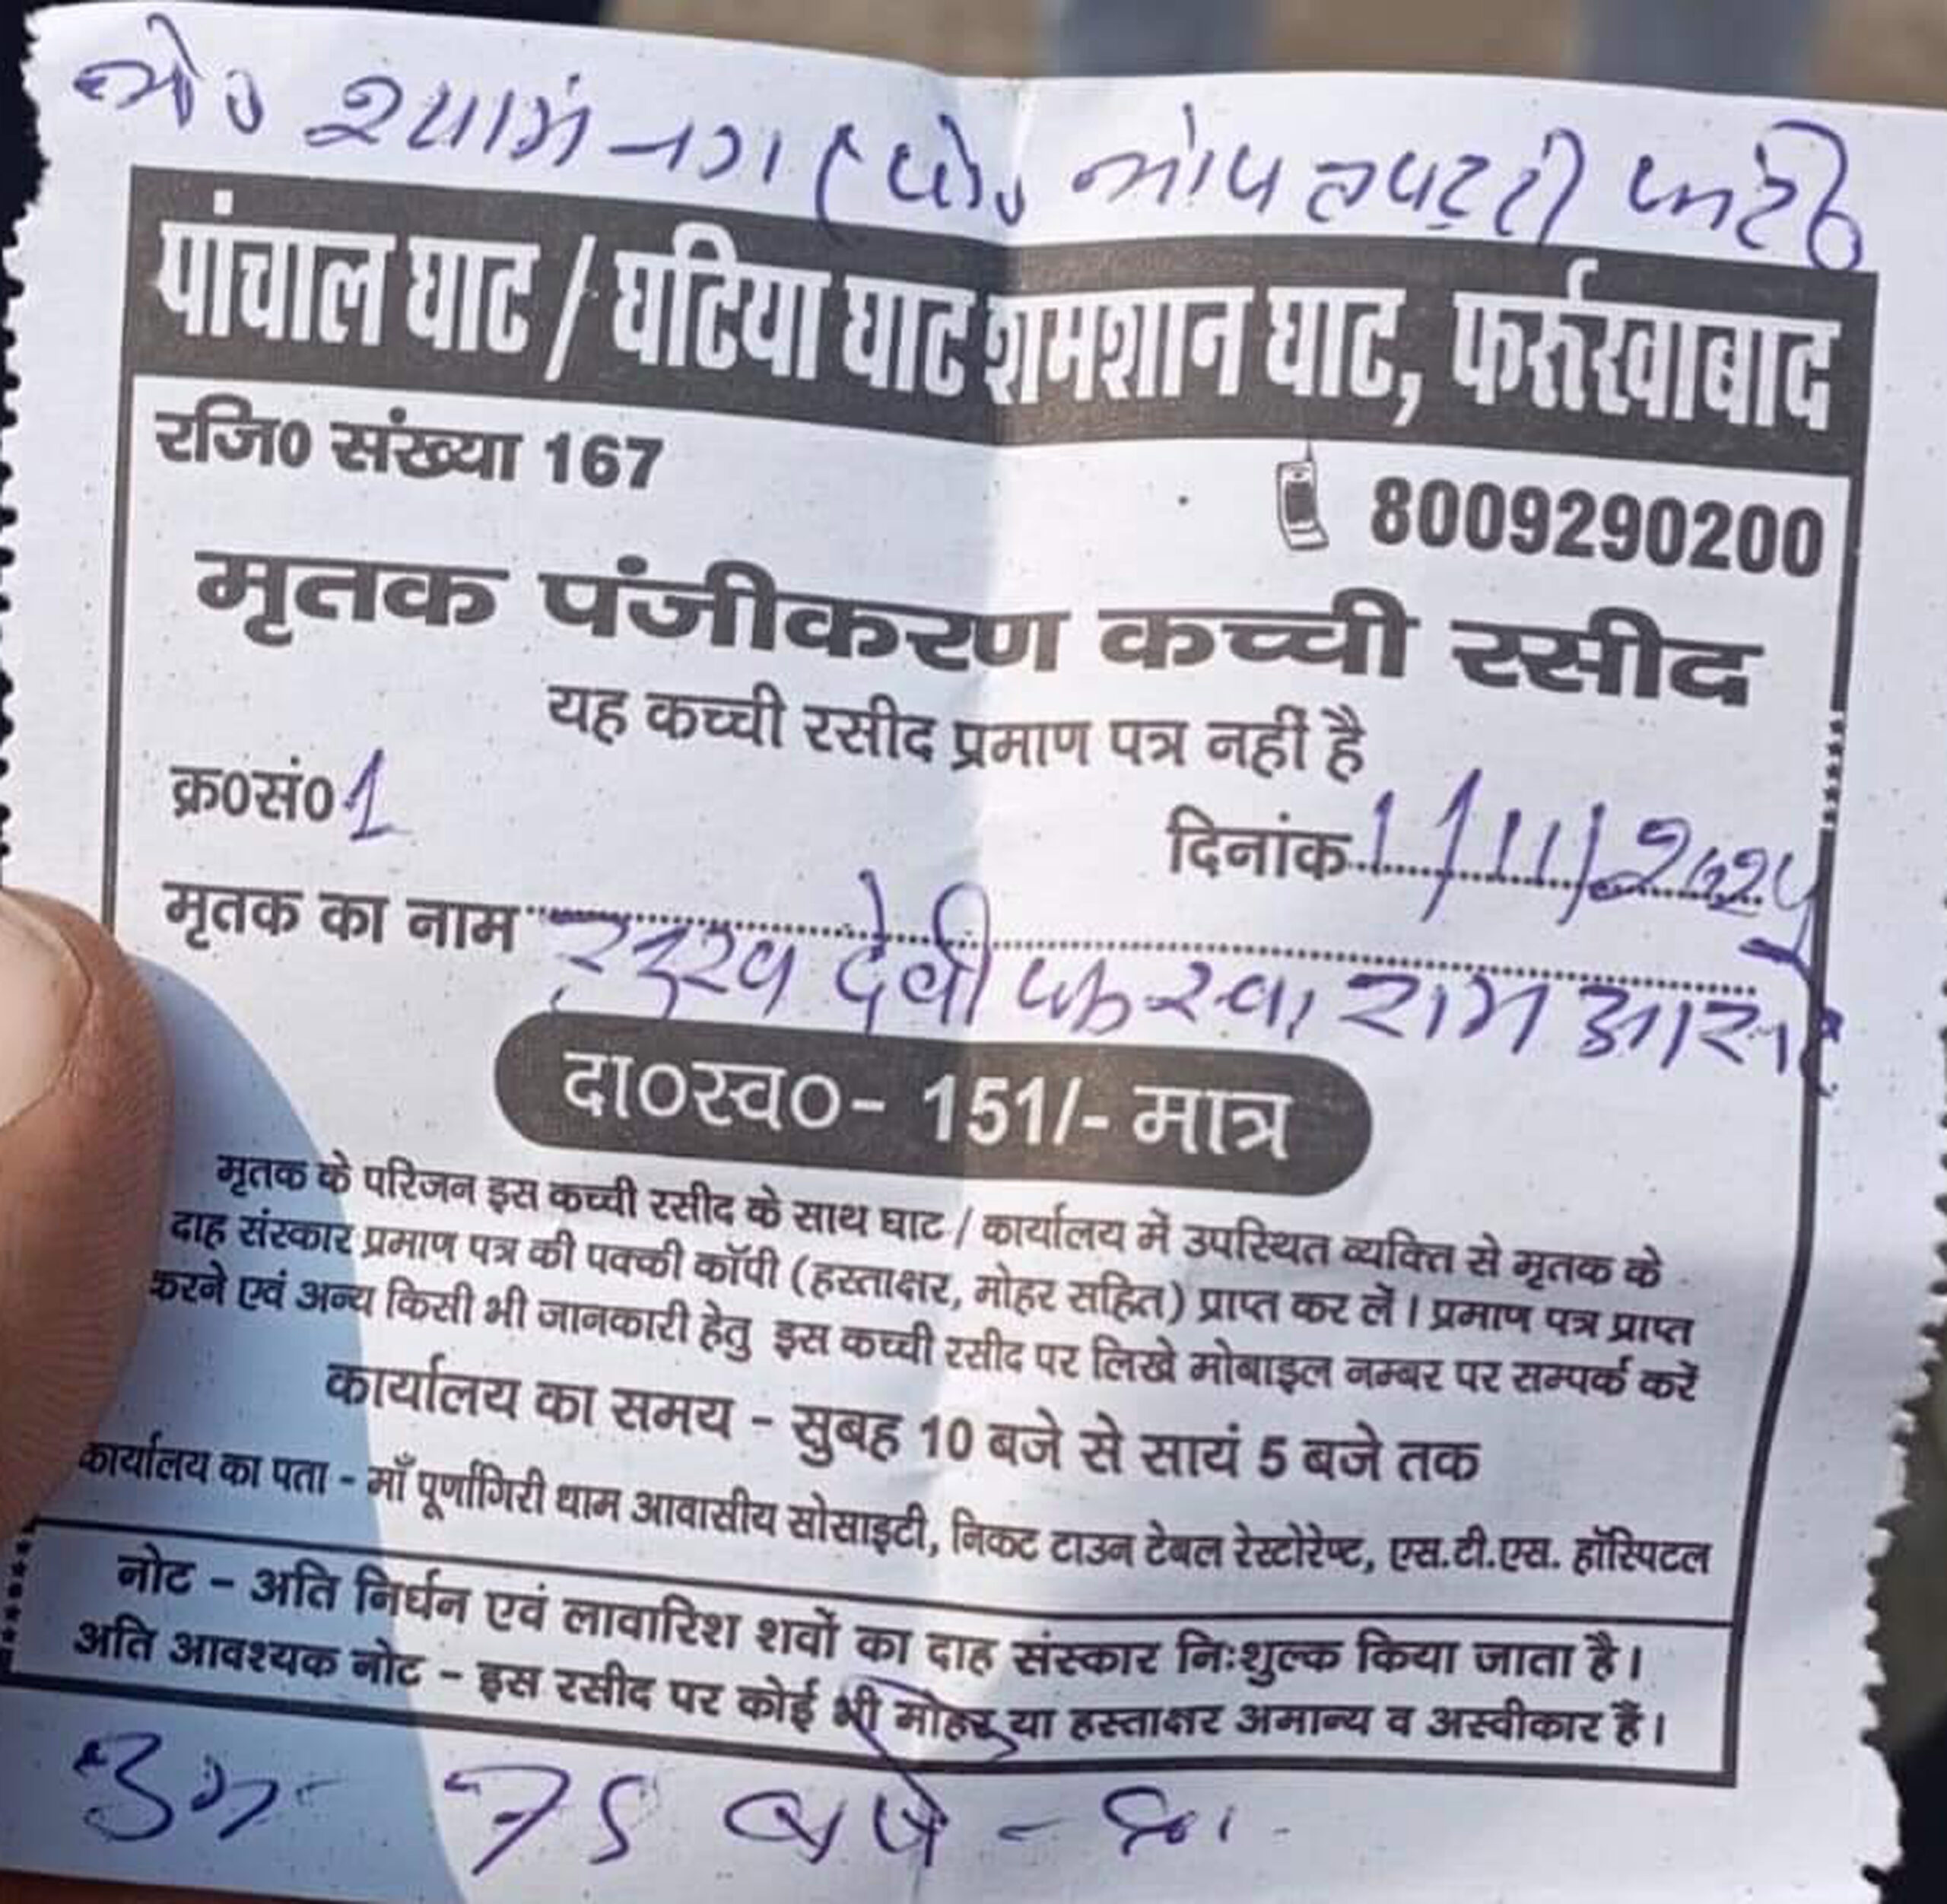 श्याम नगर पो० भोपतपट्टी फर्रु०
पांचाल घाट / घटिया घाट शमशान घाट, फर्रुखाबाद
रजि० संख्या 167
8009290200
मृतक पंजीकरण कच्ची रसीद
यह कच्ची रसीद प्रमाण पत्र नहीं है
क्र०सं० 1
दिनांक 1/11/2024
मृतक का नाम देवी राम आसरे
दा०स्व०- 151/- मात्र
मृतक के परिजन इस कच्ची रसीद के साथ घाट / कार्यालय में उपस्थित व्यक्ति से मृतक के
दाह संस्कार प्रमाण पत्र की पक्की कॉपी (हस्ताक्षर, मोहर सहित) प्राप्त कर लें। प्रमाण पत्र प्राप्त
करने एवं अन्य किसी भी जानकारी हेतु इस कच्ची रसीद पर लिखे मोबाइल नम्बर पर सम्पर्क करें
कार्यालय का समय - सुबह 10 बजे से सायं 5 बजे तक
कार्यालय का पता - माँ पूर्णागिरी धाम आवासीय सोसाइटी, निकट टाउन टेबल रेस्टोरेण्ट, एस.टी.एस. हॉस्पिटल
नोट - अति निर्धन एवं लावारिश शवों का दाह संस्कार निःशुल्क किया जाता है।
अति आवश्यक नोट - इस रसीद पर कोई भी मोहर या हस्ताक्षर अमान्य व अस्वीकार हैं।
उम्र वर्ष